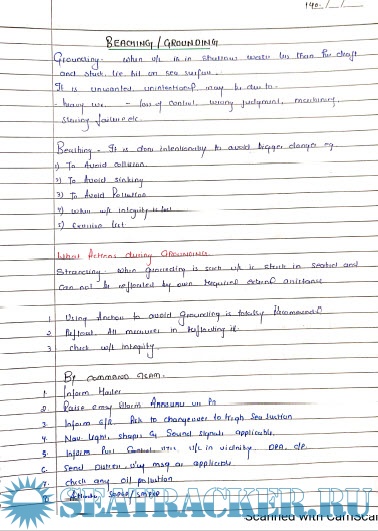 140. / /
BEACHING / GROUNDING
Grounding - when v/l is in shallow water less than the draft
and stuck, i.e. hit on sea surface.
It is unwanted, unintentional, may be due to -
- heavy wx. - loss of control, wrong judgment, machinery,
steering failure etc.
Beaching - It is done intentionally to avoid bigger danger eg
1) To Avoid collision.
2) To Avoid sinking
3) To Avoid Pollution
4) when w/t integrity is lost
5) Excessive list
What Actions during GROUNDING
Stranding - when grounding is such v/l is stuck in seabed and
can not be refloated by own required external assistance
1 Using Anchor to avoid grounding is totally
2 Refloat. All measures in refloating it.
3 check w/t integrity.
By command team.
1. Inform Master
2. Raise emcy Alarm Announce on PA
3. Inform E/R. Ask to changeover to High Sea suction
4. Nav light, shapes & Sound signals applicable.
5. Inform v/l in vicinity. DPA,
6. Send Distress msg as applicable.
7. check any oil pollution
8. SOPEP / SMPEP
SEATRACKER.RU
Scanned with CamScan